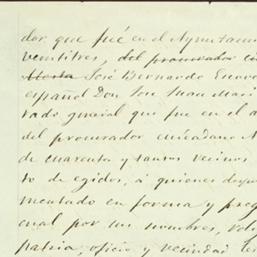 dor, que fué en el Ayuntam
veintitres, del procurador
José Bernardo
español Don José Juan Mari
rado general que fue en el a
del procurador ciudadano
de cuarenta y tantos vecinos
to de egidos, á quienes
mentado en forma y preg
cual por sus nombres,
patria, oficio y vecindad